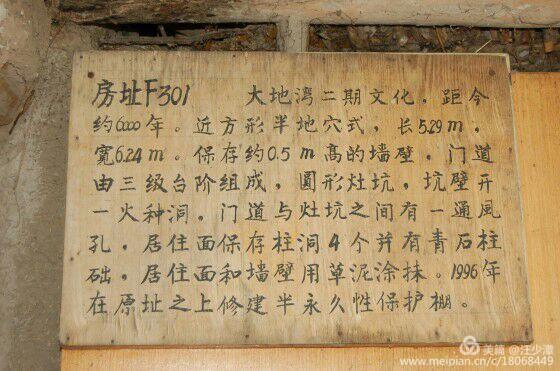 房址F301 大地湾二期文化，距今
约6000年。近方形半地穴式，长5.29m，
寬6.24m。保存约0.5m高的墙壁，门道
由三级台阶组成，圆形灶坑，坑壁开
一火种洞，门道与灶坑之间有一通風
孔，居住面保存柱洞4个并有青石柱
础，居住面和墙壁用草泥涂抹。1996年
在原址之上修建半永久性保护棚。
美篇 @汪少潭
www.meipian.cn/c/18068449